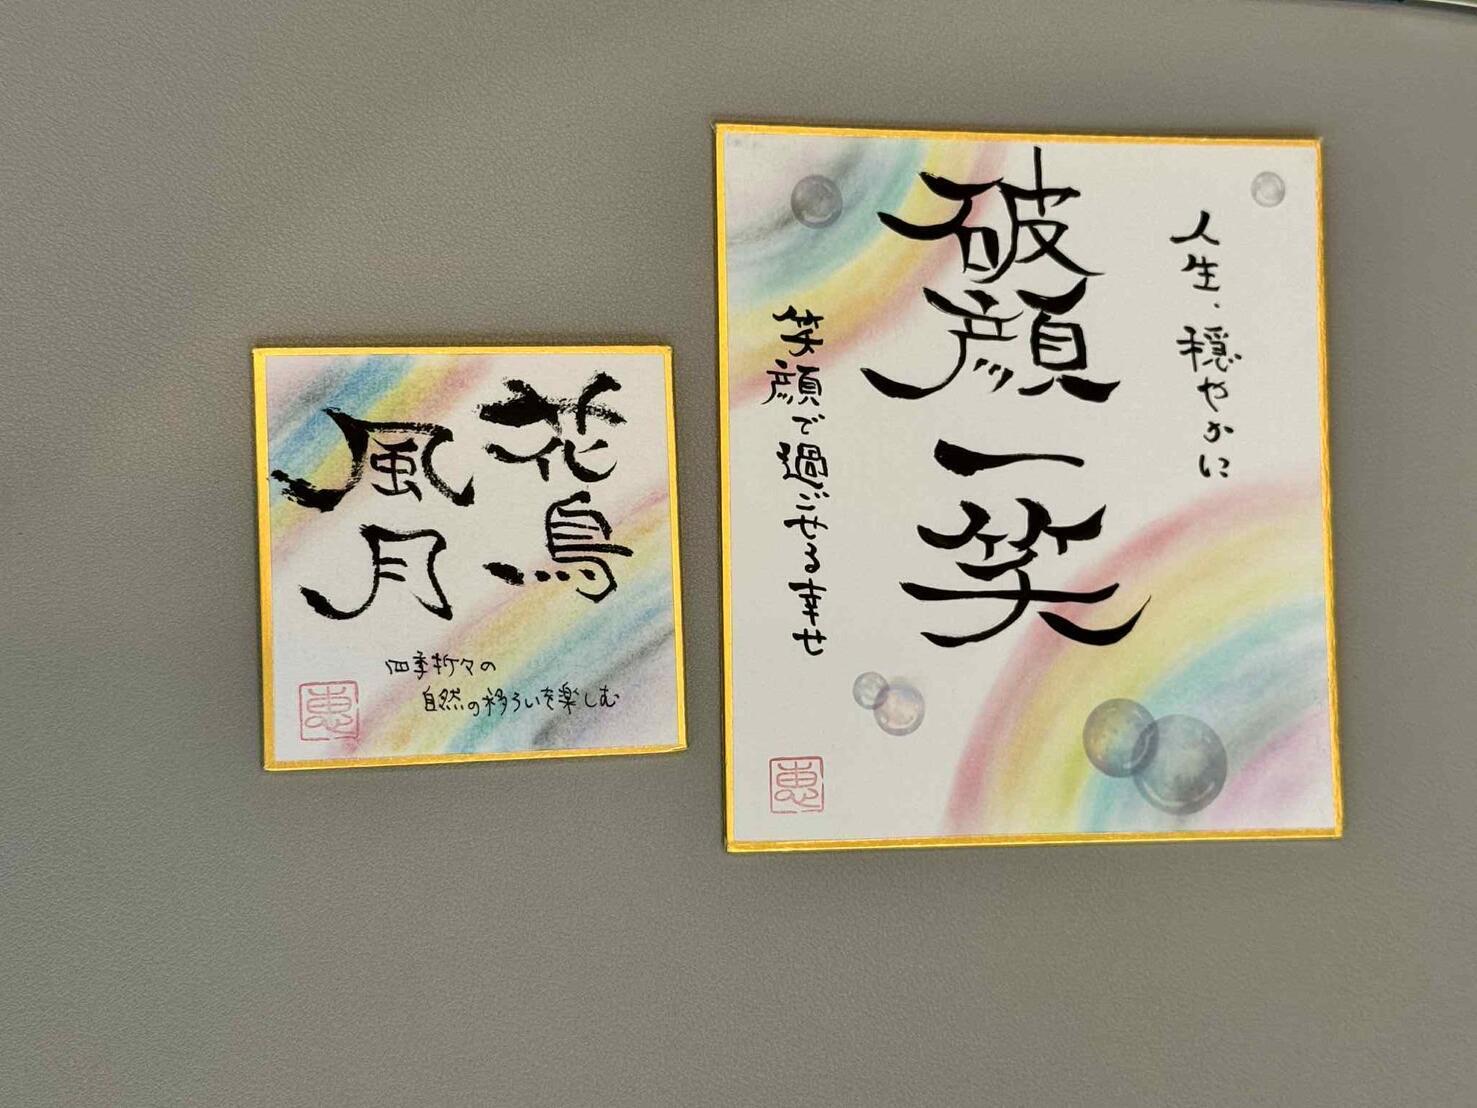 花鳥
風月
四季折々の
自然の移ろいを楽しむ
恵
人生、穏やかに
破顔一笑
笑顔で過ごせる幸せ
恵